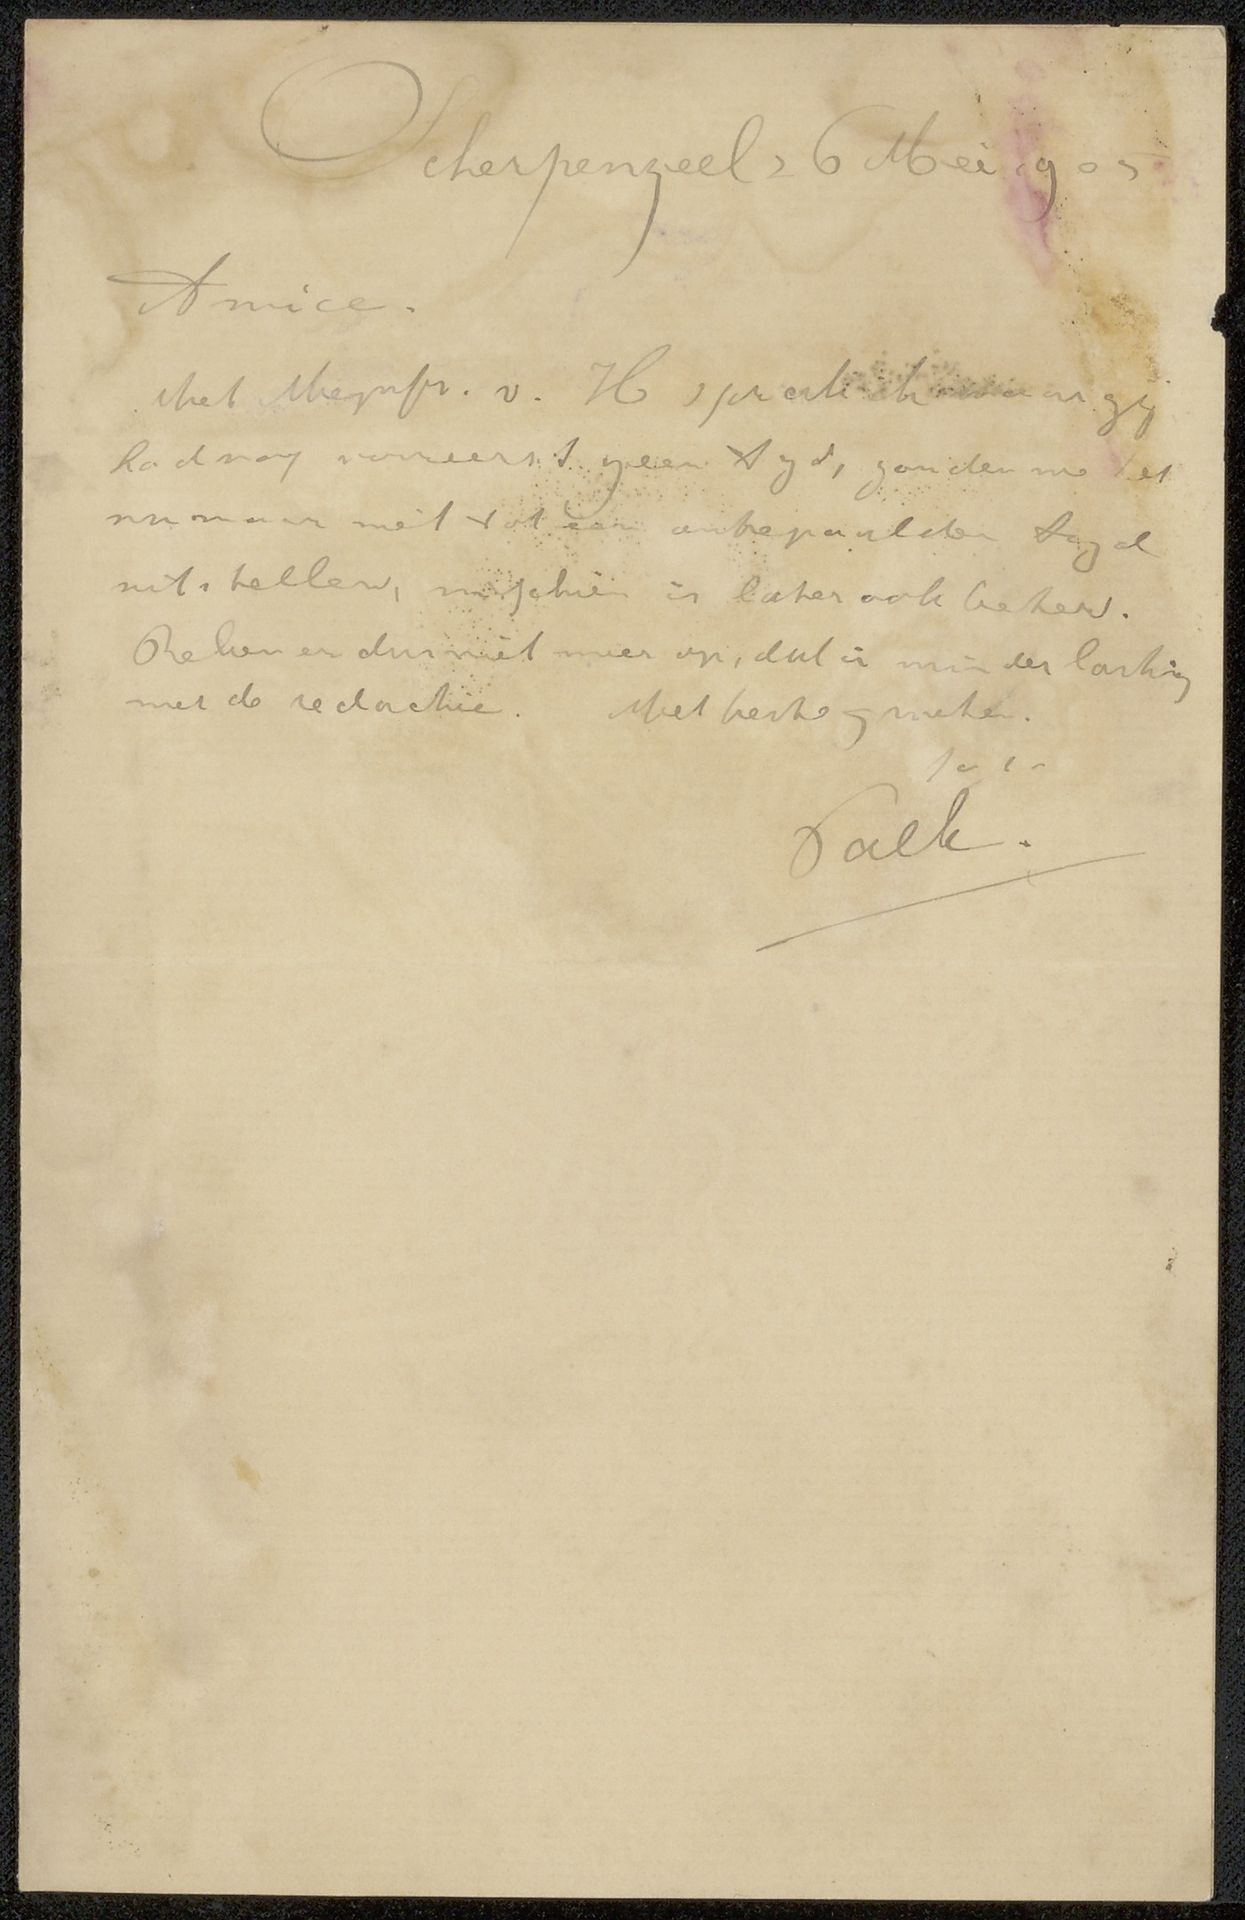 Scherpenzeel 26 Mei 905
Amice.
Met Mejufr. v. H sprak ik maar zij
had nog vooreerst geen tijd, zouden we het
nu maar niet tot een onbepaalden tijd
uitstellen, misschien is later ook beter.
Reken er dus niet meer op, dat is minder lastig
met de redactie. Met beste groeten.
tat
Valk.